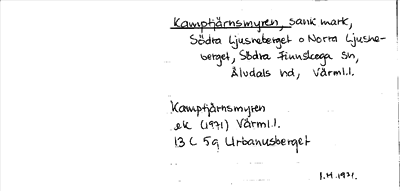 Kamptjärnsmyren, sank mark,
Södra Ljusneberget o Norra Ljusne-
berget, Södra Finnskoga sn,
Älvdals hd, Värml.l.
Kamptjärnsmyren
ek (1971) Värml.l.
13 C 5a Urbanusberget
1.H.1971.